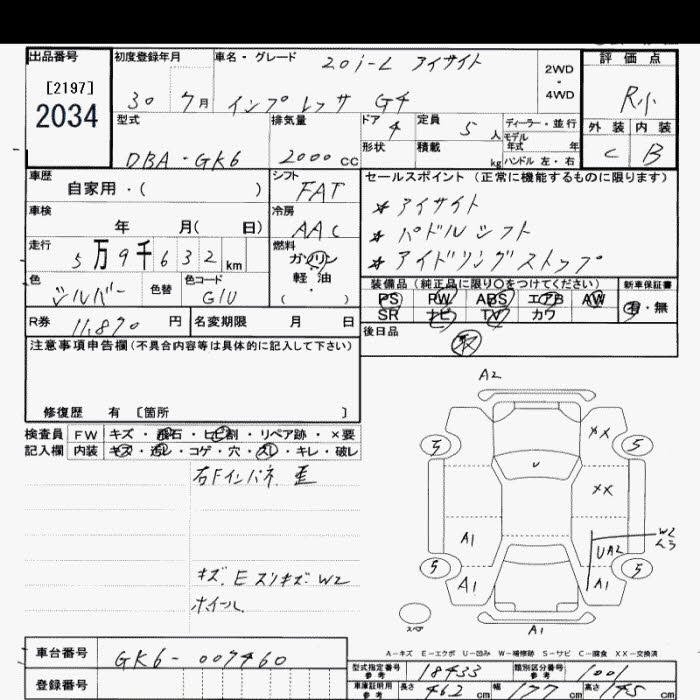 出品番号
[2197]
2034
初度登録年月
30 7月
車名・グレード
2.0i-L アイサイト
インプレッサ G4
2WD
・
4WD
評価点
R小
外装 内装
C B
型式
DBA・GK6
排気量
2000 CC
ドア
4
定員
5 人
形状
積載
kg
ディーラー・並行
モデル
年式 年
ハンドル 左・右
車歴
自家用・( )
シフト
FAT
セールスポイント (正常に機能するものに限ります)
* アイサイト
* パドルシフト
* アイドリングストップ
車検
年 月( 日)
冷房
AAC
走行
5万9千632km
燃料
ガソリン
軽・油
( ・ )
色
シルバー
色替
色コード
G1U
装備品 (純正品に限り○をつけてください)
PS PW ABS エアB AW
SR ナビ TV カワ
新車保証書
有・無
R券 11,870 円
名変期限 月 日
後日品
取
注意事項申告欄 (不具合内容等は具体的に記入して下さい)
修復歴 有 〔箇所 〕
検査員 FW キズ・飛石・ヒビ割・リペア跡・×要
記入欄 内装 キズ・汚レ・コゲ・穴・スレ・キレ・破レ
右Fインパネ 歪
キズ. E スリキズ. W2
ホイール
A2
5
XX
5
U
XX
A1
W2
UA2
5
A1
A1
5
スペア
A1
A－キズ E－エクボ U－凹み W－補修跡 S－サビ C－腐食 XX－交換済
車台番号 GK6-007460
登録番号
型式指定番号
参考
18433
類別区分番号
参考
1001
車庫証明用
参考
長さ 462 cm 幅 177 cm 高さ 145 cm